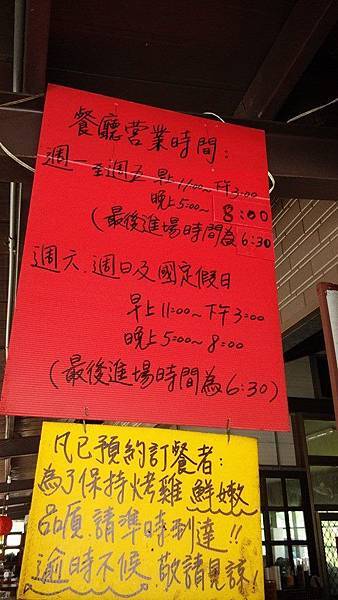 餐廳營業時間:
週一至週五 早上11:00~下午3:00
晚上5:00~8:00
(最後進場時間為6:30
週六.週日及國定假日
早上11:00~下午3:00
晚上5:00~8:00
(最後進場時間為6:30)
凡已預約訂餐者:
為了保持烤雞鮮嫩
品質請準時到達!!
逾時不候 敬請見諒!